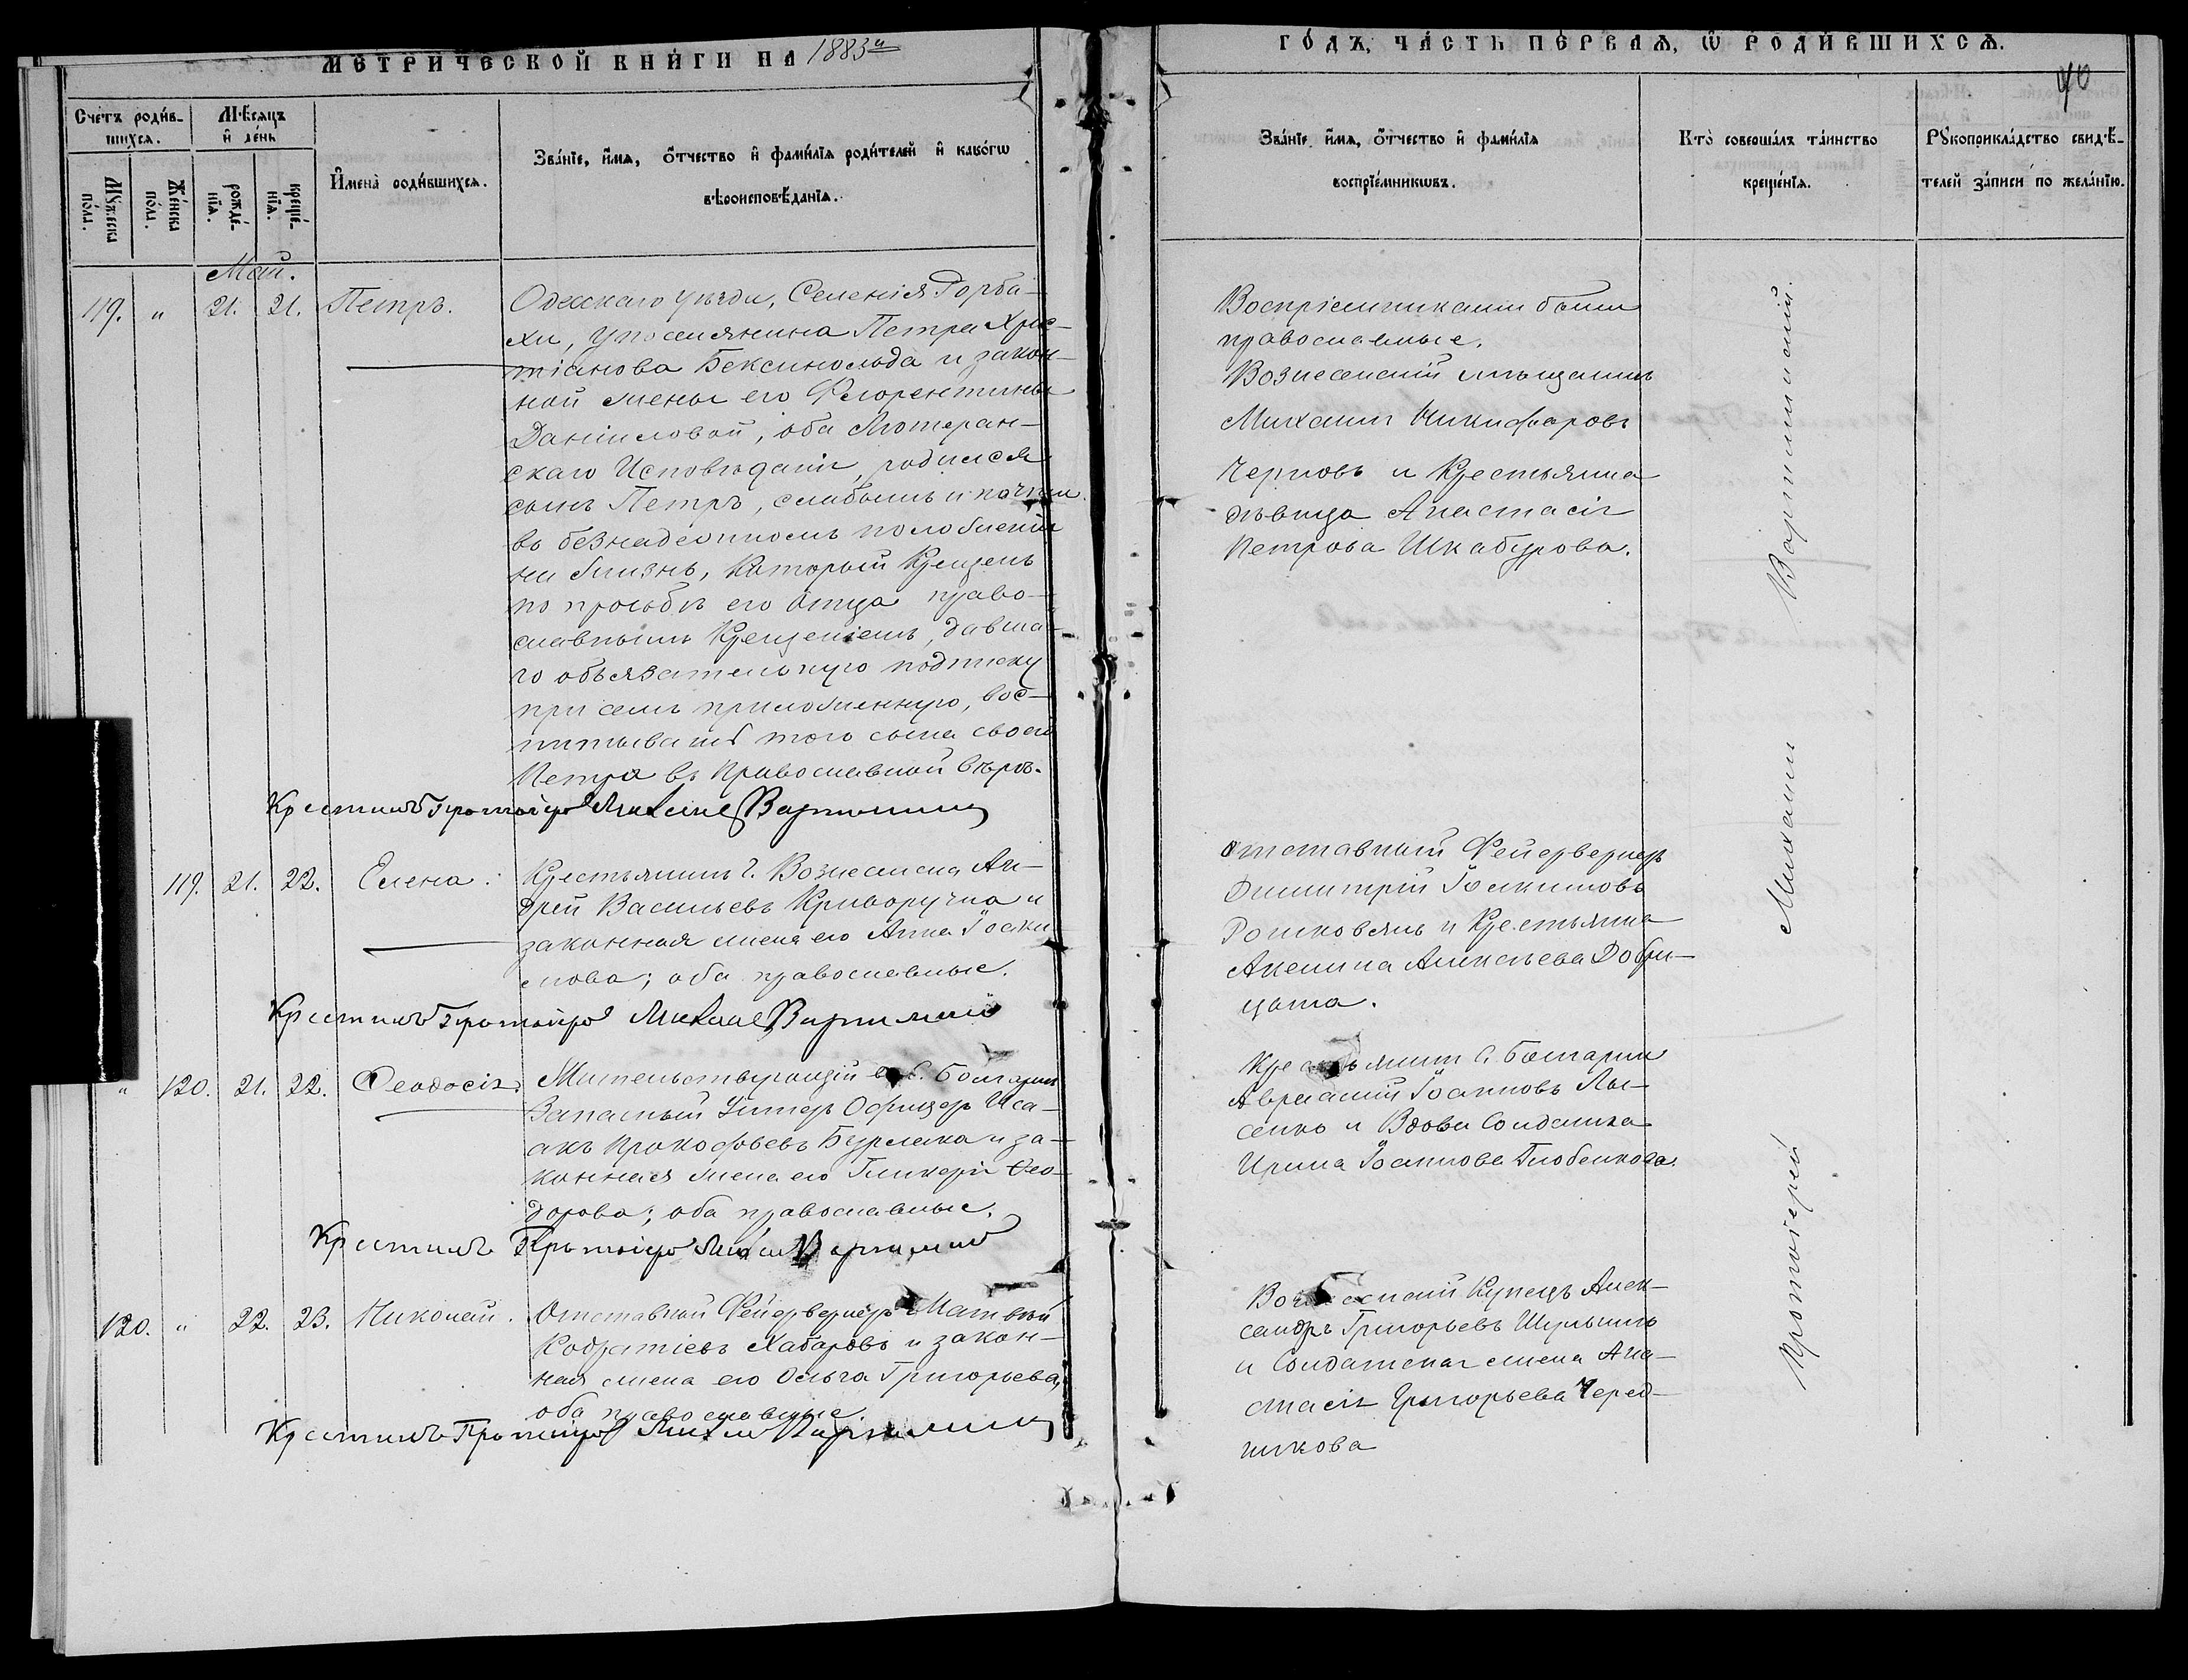 МЕТРИЧЕСКОЙ КНИГИ НА 1883й
ГОДЪ, ЧАСТЬ ПЕРВАЯ, Ѡ РОДИВШИХСЯ.
Счетъ родив-
шихся.
Мѣсяцъ
и день
Мужеска
полу.
Женска
полу.
рожде-
нія.
креще-
нія.
Имена родившихся.
Званіе, имя, отчество и фамилія родителей и какогѡ
вѣроисповѣданія.
Званіе, имя, отчество и фамилія
воспріемникѡвъ.
Кто совершалъ таинство
крещенія.
Рукоприкладство свидѣ-
телей записи по желанію.
Май.
119. " 21. 21. Петръ.
Одесскаго уѣзда, Селенія Горба-
хи, Упоселянина Петра Хрис-
тіанова Бексинольда и закон-
ной жены его Флорентины
Даніиловой, оба Лютеран-
скаго Исповѣданія, родился
сынъ Петръ, слабымъ и почти
въ безнадежномъ положеніи
на жизнь, который Крещенъ
по просьбѣ его отца право-
славнымъ Крещеніемъ, давша-
го объязательную подписку
при семъ приложенную, вос-
питывать того сына своего
Петра въ Православной вѣрѣ.
Крестилъ Протоіерей Михаилъ
Воспріемниками были
православные.
Вознесенскій мѣщанинъ
Михаилъ Никифоровъ
Черновъ и Крестьянка
дѣвица Анастасія
Петрова Шкабурова.
119. 21. 22. Елена.
Крестьянинъ г. Вознесенска Ан-
дрей Васильевъ Криворучка и
законная жена его Анна Іоаки-
мова; оба православные.
Крестилъ Протоіерей Михаилъ
Отставный Фейерверкеръ
Димитрій Іоакимовъ
и Крестьянка
Акелина Алексѣева Добри-
цата.
" 120. 21. 22. Феодосія.
Жительствующій въ с. Болгарки
Запасный Унтеръ Офицеръ Иса-
акъ Прокофьевъ Бурлака и за-
конная жена его Гликерія Фео-
дорова; оба православные.
Крестилъ Протоіерей Михаилъ
Крестьянинъ с. Болгарки
Аврамій Іоанновъ Лы-
сенко и Вдова Солдатка
Ирина Іоаннова
120. " 22. 23. Николай.
Отставной Фейерверкеръ Матвѣй
Кодратіевъ Хабаровъ и закон-
ная жена его Ольга Григорьева,
оба православные.
Крестилъ Протоіерей Михаилъ
Вознесенскій Купецъ Алек-
сандръ Григорьевъ Шульгинъ
и Солдатская жена Ана-
стасія Григорьева Черед-
никова
Протоіерей Михаилъ